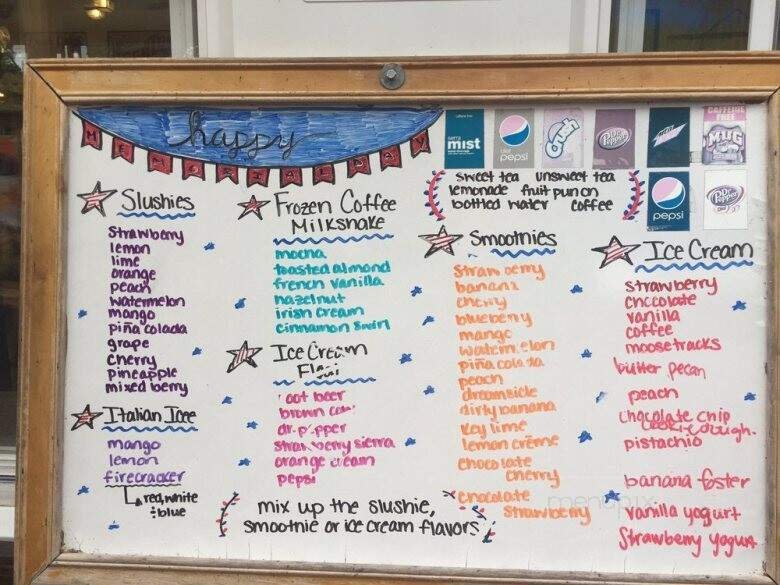 happy
MEMORIAL DAY
Slushies
strawberry
lemon
lime
orange
peach
watermelon
mango
piña colada
grape
cherry
pineapple
mixed berry
Italian Icee
mango
lemon
firecracker
red, white
& blue
Frozen Coffee
Milkshake
mocha
toasted almond
french vanilla
hazelnut
irish cream
cinnamon swirl
Ice Cream
oot beer
brown
dr. p pper
strawberry sierra
orange cream
pepsi
mix up the slushie,
smoothie or ice cream flavors!
sierra
mist
pepsi
Crush
Dr Pepper
CAFFEINE
FREE
MUG
pepsi
Dr Pepper
sweet tea unsweet tea
lemonade fruit punch
bottled water coffee
Smoothies
strawberry
banana
cherry
blueberry
mango
watermelon
piña colada
peach
dreamsicle
dirty banana
key lime
lemon crème
chocolate
cherry
chocolate
strawberry
Ice Cream
strawberry
chocolate
vanilla
coffee
moosetracks
butter pecan
peach
chocolate chip
cookie dough
pistachio
banana foster
vanilla yogurt
Strawberry yogurt
menupix